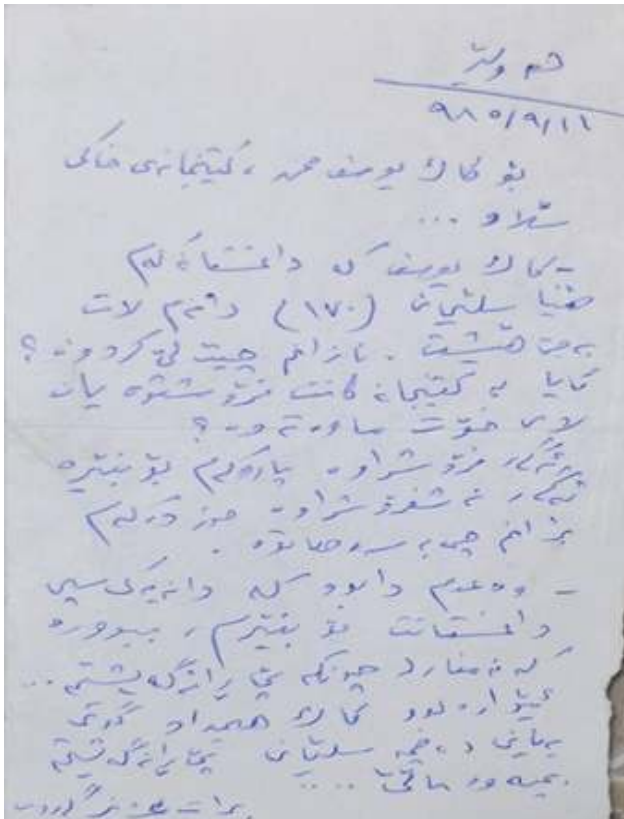 هەولێر
٩٨٥/٩/١١
بۆ کاک یوسف حمە، کتێبخانەی خاکی
سڵاو ...
- کاک یوسف کە داغستانەکەم
هێنا سلێمانی (١٧٠) دانەم لات
بەجێ هێشت. نازانم چیت لێ کردوون؟
ئایا بە کتێبخانەکانت فرۆشتوە یان
لای خۆت ماوەتەوە؟
ئەگەر فرۆشراوە پارەکەم بۆ بنێرە
ئەگەر نەفرۆشراوە حەز دەکەم
بزانم چی بەسەر هاتوە.
- وەعدم دابوو کە دانەیەکی سپی
داغستانت بۆ بنێرم، ببوورە
کە نەمنارد چونکە پێ ڕانەگەیشتم..
ئێوارە بوو کاک هیمداد گوتی
بەیانی دەچمە سلێمانی پێ ڕانەگەیشتم